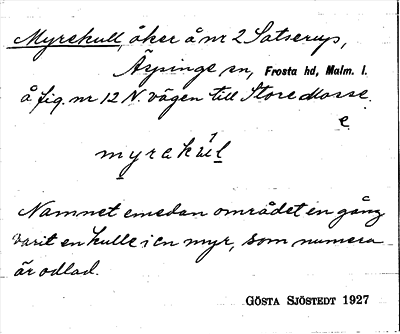 Myrekull, åker å nr 2 Satserup,
Äspinge sn, Frosta hd, Malm. l.
å fig. nr 12 N. vägen till Store Mosse.
e
myrakúl
Namnet emedan området en gång
varit en kulle i en myr, som numera
är odlad.
GÖSTA SJÖSTEDT 1927